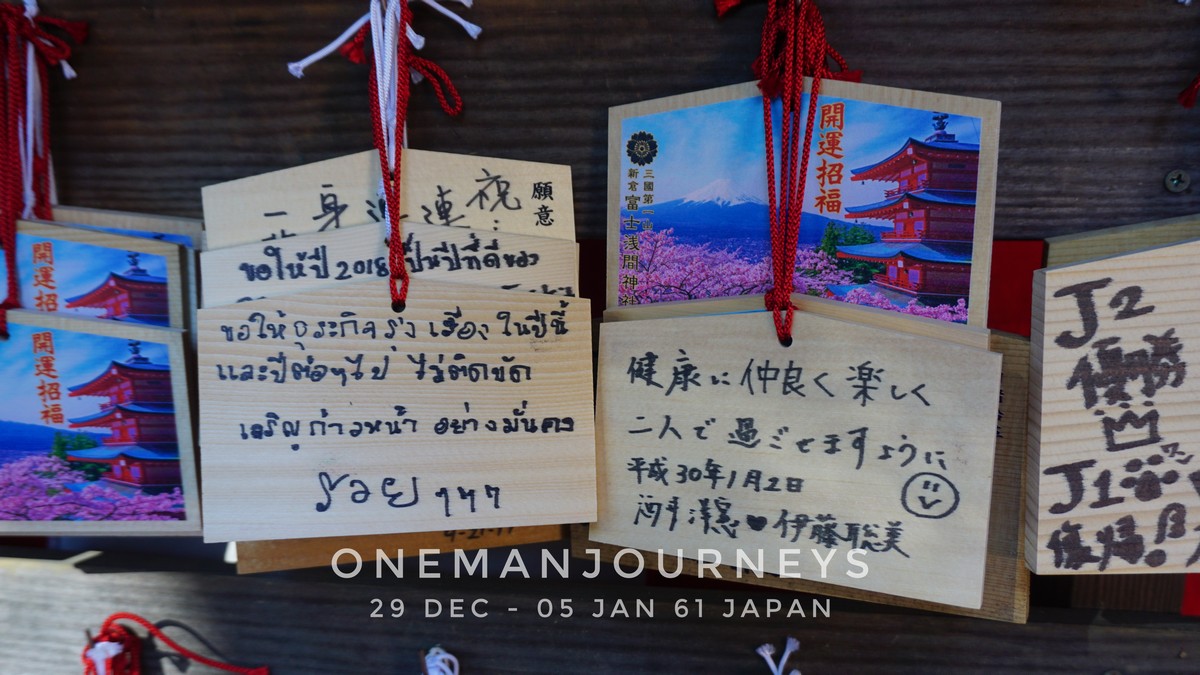 開運招福
開運招福
願意
祝
身
ขอให้ปี 2018 เป็นปีที่ดีของ
ขอให้ธุระกิจรุ่งเรือง ในปีนี้
และปีต่อๆไป ไม่ติดขัด
เจริญก้าวหน้า อย่างมั่นคง
開運招福
三國第一山
新倉富士浅間神社
健康に仲良く楽しく
二人で過ごせますように
平成30年1月2日
伊藤聡美
J2
優勝
J1
復帰
ONEMANJOURNEYS
29 DEC - 05 JAN 61 JAPAN